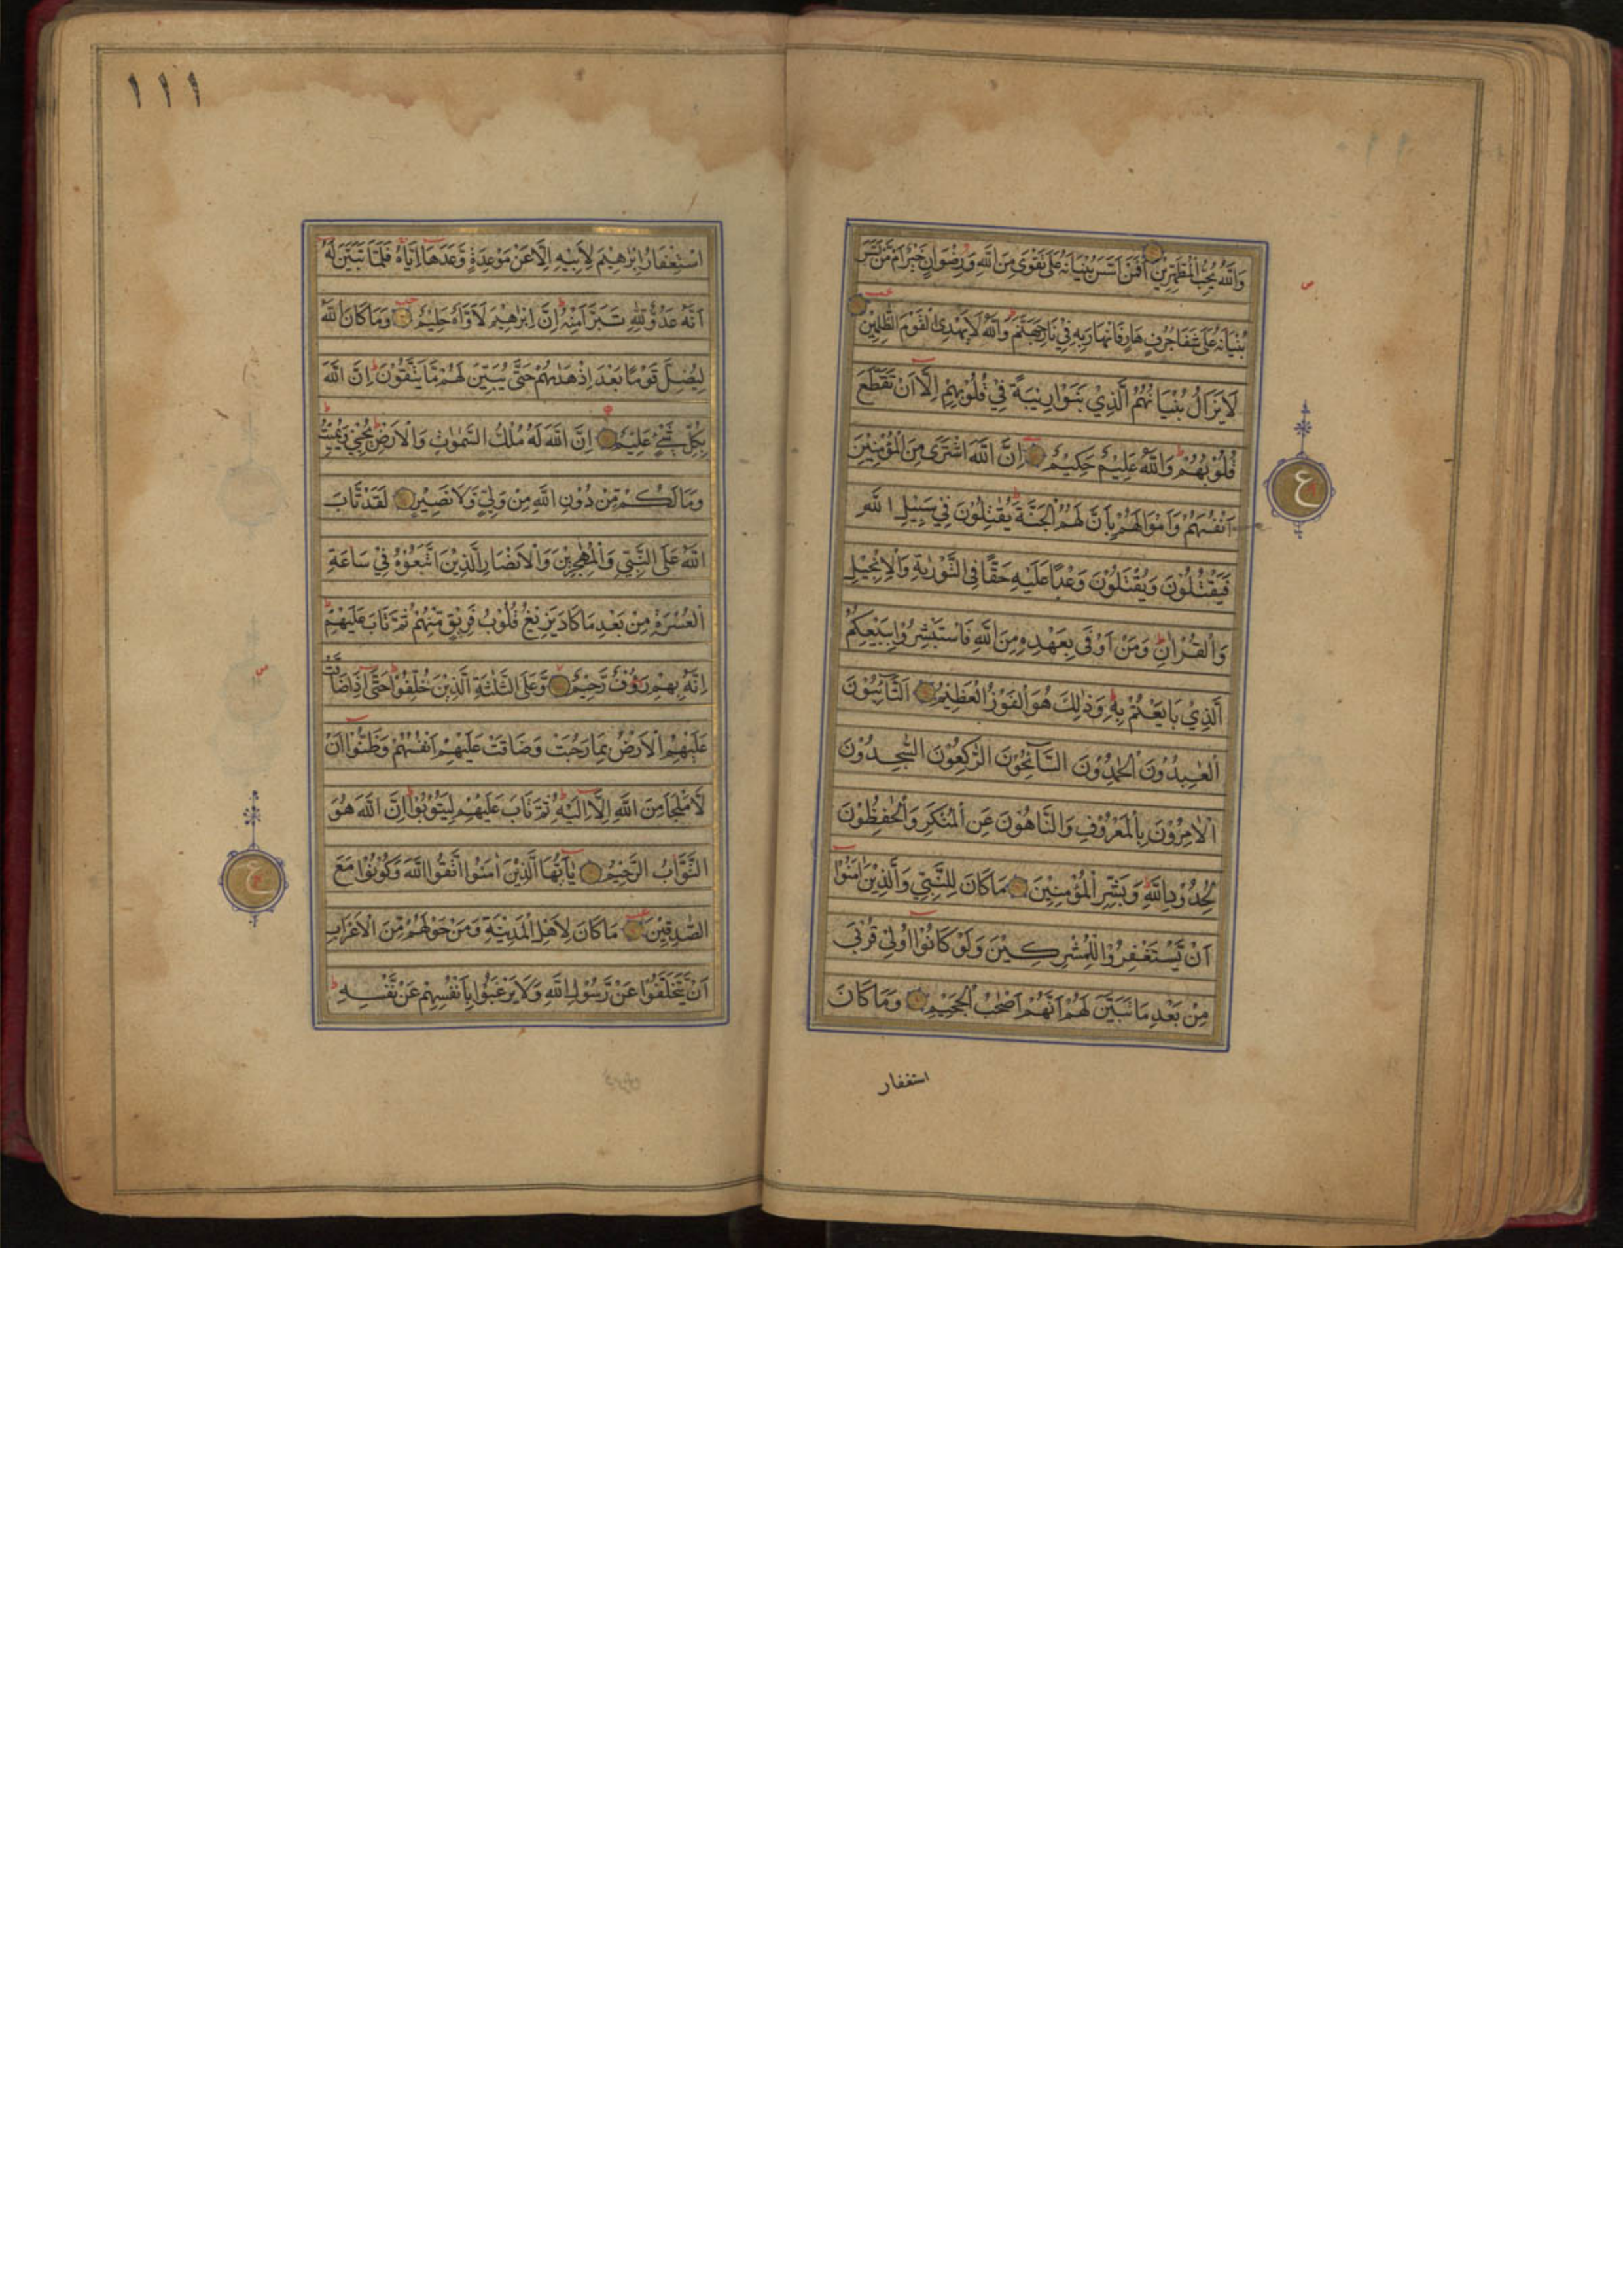 وَاللّٰهُ يُحِبُّ الْمُطَّهِّرِيْنَ اَفَمَنْ اَسَّسَ بُنْيَانَهُ عَلٰى تَقْوٰى مِنَ اللّٰهِ وَرِضْوَانٍ خَيْرٌ اَمْ مَّنْ اَسَّسَ
بُنْيَانَهُ عَلٰى شَفَا جُرُفٍ هَارٍ فَانْهَارَ بِهِ فِيْ نَارِ جَهَنَّمَ وَاللّٰهُ لَا يَهْدِى الْقَوْمَ الظّٰلِمِيْنَ
لَا يَزَالُ بُنْيَانُهُمُ الَّذِيْ بَنَوْا رِيْبَةً فِيْ قُلُوْبِهِمْ اِلَّا اَنْ تَقَطَّعَ
قُلُوْبُهُمْ وَاللّٰهُ عَلِيْمٌ حَكِيْمٌ اِنَّ اللّٰهَ اشْتَرٰى مِنَ الْمُؤْمِنِيْنَ
اَنْفُسَهُمْ وَاَمْوَالَهُمْ بِاَنَّ لَهُمُ الْجَنَّةَ يُقَاتِلُوْنَ فِيْ سَبِيْلِ اللّٰهِ
فَيَقْتُلُوْنَ وَيُقْتَلُوْنَ وَعْدًا عَلَيْهِ حَقًّا فِى التَّوْرٰىةِ وَالْاِنْجِيْلِ
وَالْقُرْاٰنِ وَمَنْ اَوْفٰى بِعَهْدِهِ مِنَ اللّٰهِ فَاسْتَبْشِرُوْا بِبَيْعِكُمُ
الَّذِيْ بَايَعْتُمْ بِهِ وَذٰلِكَ هُوَ الْفَوْزُ الْعَظِيْمُ اَلتَّائِبُوْنَ
الْعٰبِدُوْنَ الْحٰمِدُوْنَ السَّآئِحُوْنَ الرّٰكِعُوْنَ السّٰجِدُوْنَ
الْاٰمِرُوْنَ بِالْمَعْرُوْفِ وَالنَّاهُوْنَ عَنِ الْمُنْكَرِ وَالْحٰفِظُوْنَ
لِحُدُوْدِ اللّٰهِ وَبَشِّرِ الْمُؤْمِنِيْنَ مَا كَانَ لِلنَّبِيِّ وَالَّذِيْنَ اٰمَنُوْا
اَنْ يَّسْتَغْفِرُوْا لِلْمُشْرِكِيْنَ وَلَوْ كَانُوْا اُولِيْ قُرْبٰى
مِنْ بَعْدِ مَا تَبَيَّنَ لَهُمْ اَنَّهُمْ اَصْحٰبُ الْجَحِيْمِ وَمَا كَانَ
استغفار
ع
١١١
اسْتِغْفَارُ اِبْرٰهِيْمَ لِاَبِيْهِ اِلَّا عَنْ مَوْعِدَةٍ وَّعَدَهَا اِيَّاهُ فَلَمَّا تَبَيَّنَ لَهُ
اَنَّهُ عَدُوٌّ لِلّٰهِ تَبَرَّاَ مِنْهُ اِنَّ اِبْرٰهِيْمَ لَاَوَّاهٌ حَلِيْمٌ وَمَا كَانَ اللّٰهُ
لِيُضِلَّ قَوْمًا بَعْدَ اِذْ هَدٰىهُمْ حَتّٰى يُبَيِّنَ لَهُمْ مَّا يَتَّقُوْنَ اِنَّ اللّٰهَ
بِكُلِّ شَيْءٍ عَلِيْمٌ اِنَّ اللّٰهَ لَهُ مُلْكُ السَّمٰوٰتِ وَالْاَرْضِ يُحْيٖ وَيُمِيْتُ
وَمَا لَكُمْ مِّنْ دُوْنِ اللّٰهِ مِنْ وَلِيٍّ وَّلَا نَصِيْرٍ لَقَدْ تَّابَ
اللّٰهُ عَلَى النَّبِيِّ وَالْمُهٰجِرِيْنَ وَالْاَنْصَارِ الَّذِيْنَ اتَّبَعُوْهُ فِيْ سَاعَةِ
الْعُسْرَةِ مِنْ بَعْدِ مَا كَادَ يَزِيْغُ قُلُوْبُ فَرِيْقٍ مِّنْهُمْ ثُمَّ تَابَ عَلَيْهِمْ
اِنَّهُ بِهِمْ رَؤُفٌ رَّحِيْمٌ وَّعَلَى الثَّلٰثَةِ الَّذِيْنَ خُلِّفُوْا حَتّٰى اِذَا ضَاقَتْ
عَلَيْهِمُ الْاَرْضُ بِمَا رَحُبَتْ وَضَاقَتْ عَلَيْهِمْ اَنْفُسُهُمْ وَظَنُّوْا اَنْ
لَّا مَلْجَاَ مِنَ اللّٰهِ اِلَّا اِلَيْهِ ثُمَّ تَابَ عَلَيْهِمْ لِيَتُوْبُوْا اِنَّ اللّٰهَ هُوَ
التَّوَّابُ الرَّحِيْمُ يٰاَيُّهَا الَّذِيْنَ اٰمَنُوا اتَّقُوا اللّٰهَ وَكُوْنُوْا مَعَ
الصّٰدِقِيْنَ مَا كَانَ لِاَهْلِ الْمَدِيْنَةِ وَمَنْ حَوْلَهُمْ مِّنَ الْاَعْرَابِ
اَنْ يَّتَخَلَّفُوْا عَنْ رَّسُوْلِ اللّٰهِ وَلَا يَرْغَبُوْا بِاَنْفُسِهِمْ عَنْ نَّفْسِهِ
ع